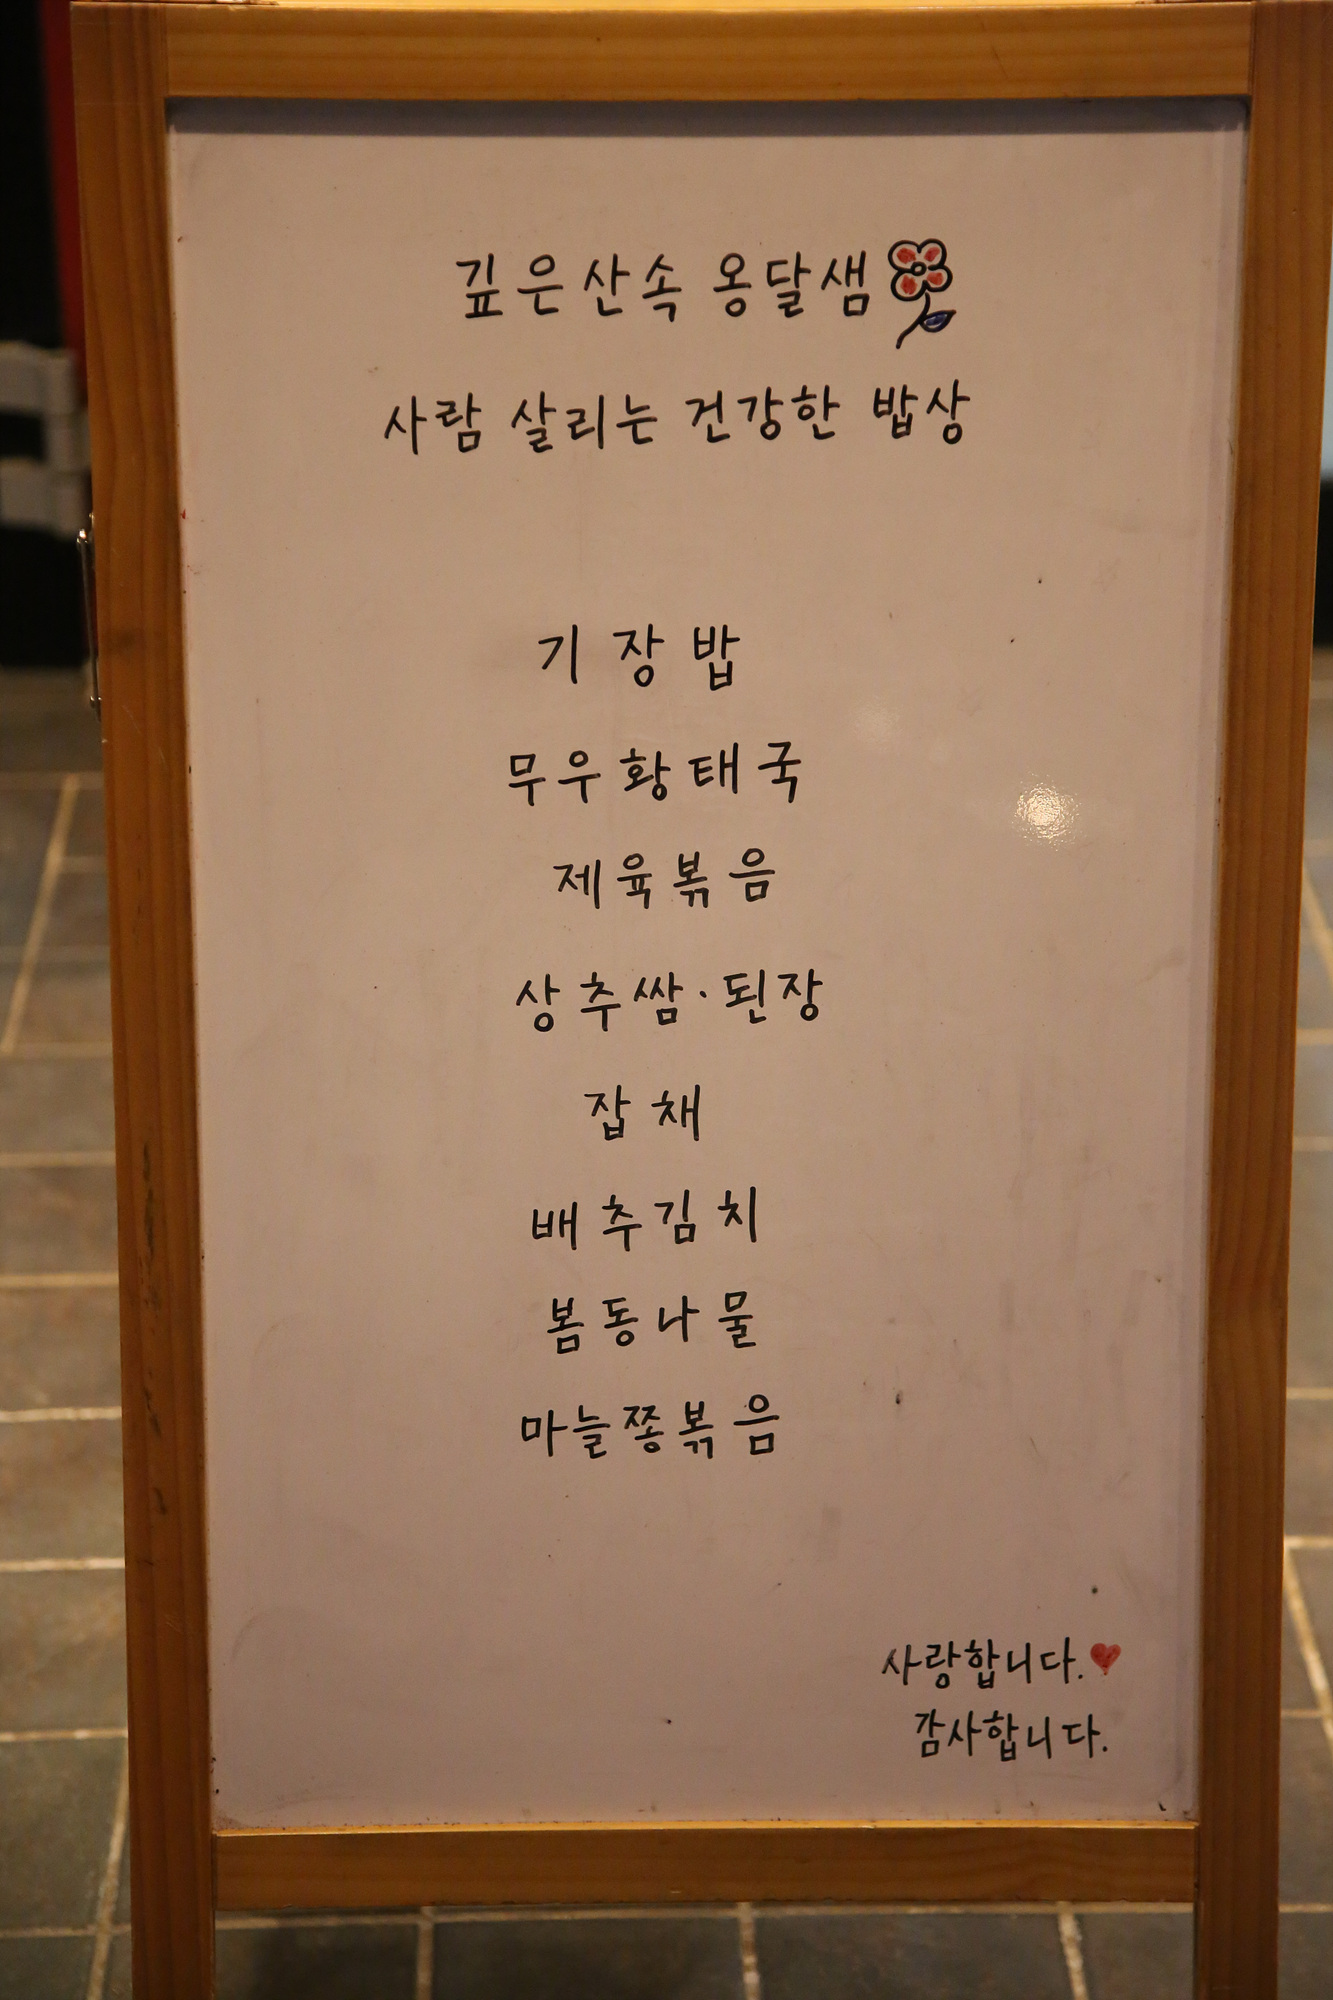 깊은산속 옹달샘
사람 살리는 건강한 밥상
기장밥
무우황태국
제육볶음
상추쌈·된장
잡채
배추김치
봄동나물
마늘쫑볶음
사랑합니다.♥
감사합니다.